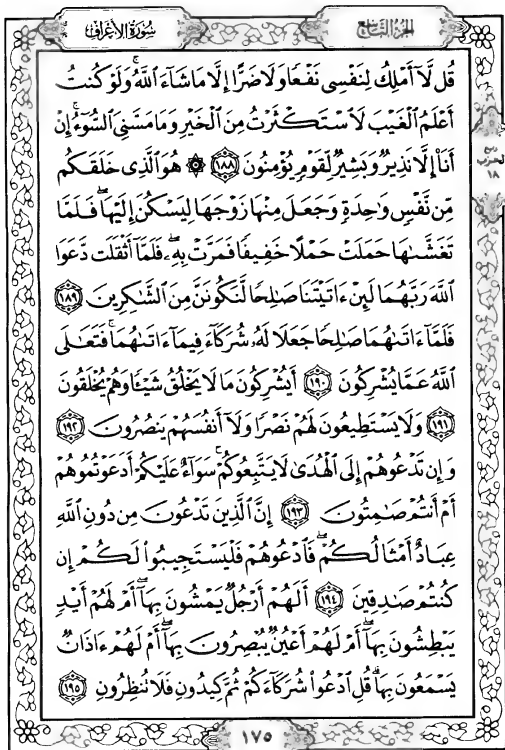 الجزء التاسع
سورة الأعراف
قُل لَّآ أَمْلِكُ لِنَفْسِى نَفْعًا وَلَا ضَرًّا إِلَّا مَا شَآءَ ٱللَّهُۚ وَلَوْ كُنتُ
أَعْلَمُ ٱلْغَيْبَ لَٱسْتَكْثَرْتُ مِنَ ٱلْخَيْرِ وَمَا مَسَّنِىَ ٱلسُّوٓءُۚ إِنْ
أَنَا۠ إِلَّا نَذِيرٌ وَبَشِيرٌ لِّقَوْمٍ يُؤْمِنُونَ ١٨٨ ۞ هُوَ ٱلَّذِى خَلَقَكُم
مِّن نَّفْسٍ وَٰحِدَةٍ وَجَعَلَ مِنْهَا زَوْجَهَا لِيَسْكُنَ إِلَيْهَاۖ فَلَمَّا
تَغَشَّىٰهَا حَمَلَتْ حَمْلًا خَفِيفًا فَمَرَّتْ بِهِۦۖ فَلَمَّآ أَثْقَلَت دَّعَوَا
ٱللَّهَ رَبَّهُمَا لَئِنْ ءَاتَيْتَنَا صَٰلِحًا لَّنَكُونَنَّ مِنَ ٱلشَّٰكِرِينَ ١٨٩
فَلَمَّآ ءَاتَىٰهُمَا صَٰلِحًا جَعَلَا لَهُۥ شُرَكَآءَ فِيمَآ ءَاتَىٰهُمَاۚ فَتَعَٰلَى
ٱللَّهُ عَمَّا يُشْرِكُونَ ١٩٠ أَيُشْرِكُونَ مَا لَا يَخْلُقُ شَيْـًٔا وَهُمْ يُخْلَقُونَ
١٩١ وَلَا يَسْتَطِيعُونَ لَهُمْ نَصْرًا وَلَآ أَنفُسَهُمْ يَنصُرُونَ ١٩٢
وَإِن تَدْعُوهُمْ إِلَى ٱلْهُدَىٰ لَا يَتَّبِعُوكُمْۚ سَوَآءٌ عَلَيْكُمْ أَدَعَوْتُمُوهُمْ
أَمْ أَنتُمْ صَٰمِتُونَ ١٩٣ إِنَّ ٱلَّذِينَ تَدْعُونَ مِن دُونِ ٱللَّهِ
عِبَادٌ أَمْثَالُكُمْۖ فَٱدْعُوهُمْ فَلْيَسْتَجِيبُوا۟ لَكُمْ إِن
كُنتُمْ صَٰدِقِينَ ١٩٤ أَلَهُمْ أَرْجُلٌ يَمْشُونَ بِهَآۖ أَمْ لَهُمْ أَيْدٍ
يَبْطِشُونَ بِهَآۖ أَمْ لَهُمْ أَعْيُنٌ يُبْصِرُونَ بِهَآۖ أَمْ لَهُمْ ءَاذَانٌ
يَسْمَعُونَ بِهَاۗ قُلِ ٱدْعُوا۟ شُرَكَآءَكُمْ ثُمَّ كِيدُونِ فَلَا تُنظِرُونِ ١٩٥
ربع
الحزب
١٨
١٧٥